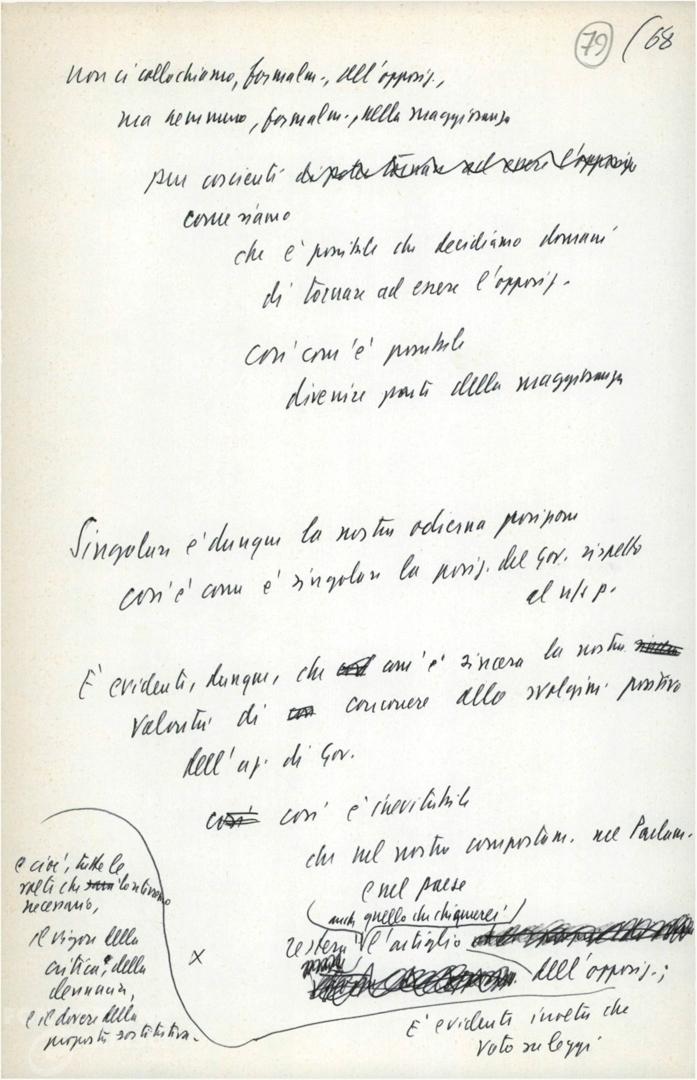 79 (68
Non ci collochiamo, formalm., all'opposiz.,
ma nemmeno, formalm., nella maggioranza
pur coscienti di poter tornare ad essere l'opposiz.
come siamo
che è possibile che decidiamo domani
di tornare ad essere l'opposiz.
così com'è possibile
divenire parte della maggioranza
Singolare è dunque la nostra odierna posizione
così è come è singolare la posiz. del Gov. rispetto
al n/s p.
È evidente, dunque, che com'è sincera la nostra
volontà di concorrere allo svolgim. positivo
dell'az. di Gov.
così così è inevitabile
che nel nostro comportam. nel Parlam.
e nel paese
anche quello che chiamerei
resterà l'artiglio
dell'opposiz.;
e cioè, tutte le
volte che lo riterremo
necessario,
il vigore della
critica, della
denuncia,
e il dovere della
proposta sostitutiva.
x
È evidente inoltre che
voto su leggi